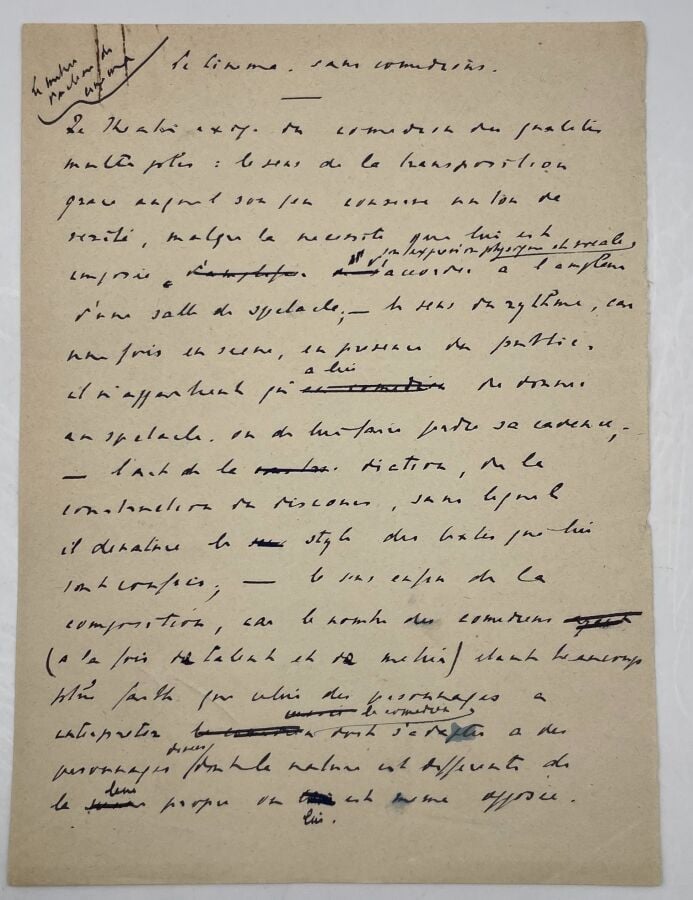 Le cinema sans comediens.
Le Theatre exige du comedien des qualités
multiples : le sens de la transposition
grace auquel son jeu conserve un ton de
verité, malgre la necessité que lui est
son expression physique et vocale,
imposée, d'accorder a l'ampleur
d'une salle de spectacle; — le sens du rythme, car
une fois en scene, en presence du public,
a lui
il n'appartient qu' au comedien de donner
au spectacle, ou de lui faire perdre sa cadence; -
— l'art de la diction, de la
construction du discours, sans lequel
il denature le style des textes que lui
sont confies; — le sens enfin de la
composition, car le nombre des comediens
(a la fois de talent et de metier) etant beaucoup
plus faible que celui des personnages a
le comedien,
interpreter doit s'adapter a des
divers
personnages (dont la nature est differente de
leur
la propre ou est meme opposée.
lui.